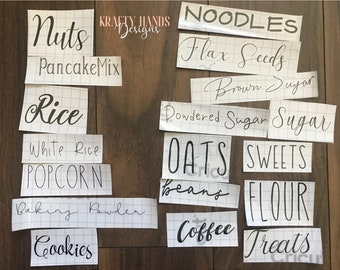 KRAFTY HANDS
Designs
Nuts
PancakeMix
Rice
White Rice
POPCORN
Baking Powder
Cookies
NOODLES
Flax Seeds
Brown Sugar
Powdered Sugar
Sugar
OATS
SWEETS
Beans
FLOUR
Coffee
Treats
Cricut